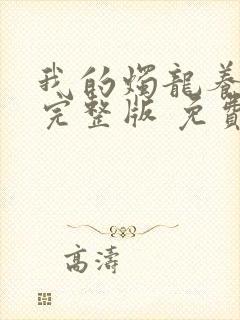 我的燭龍養
完整版 免費
高濤